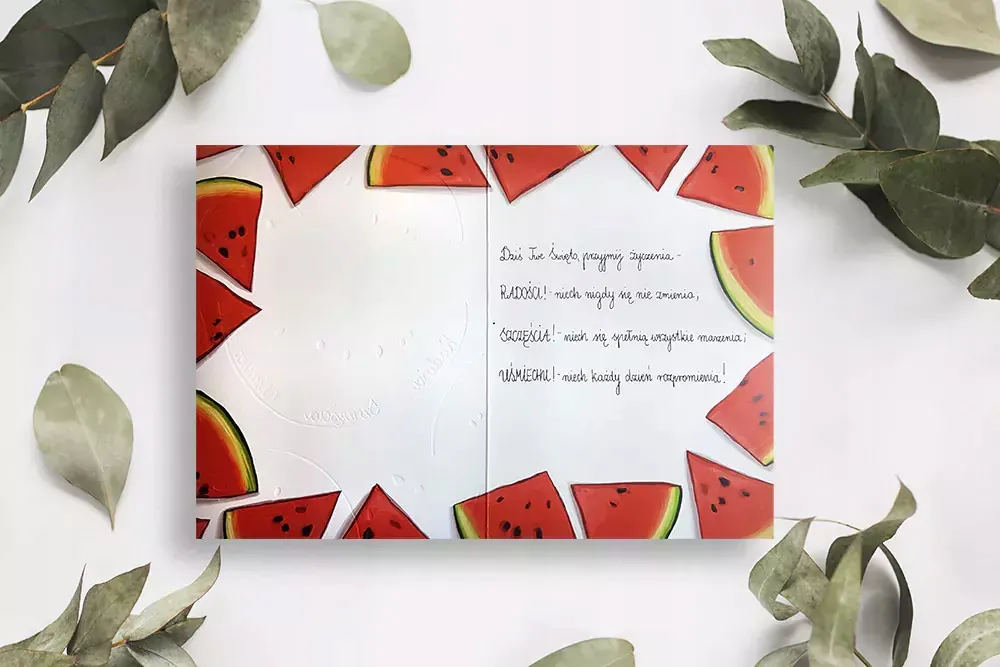 Dziś Twe Święto, przyjmij życzenia -
RADOŚCI! - niech nigdy się nie zmienia;
SZCZĘŚCIA! - niech się spełnią wszystkie marzenia;
UŚMIECHU! - niech każdy dzień rozpromienia!